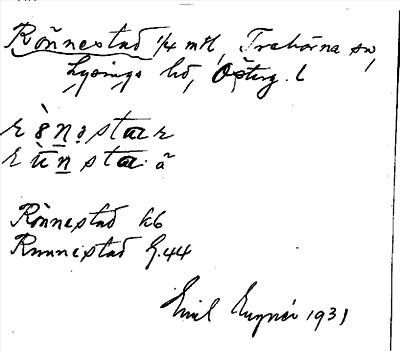 Rönnestad 1/4 mtl, Trehörna sn,
Lysings hd, Östurg. l
rö̀n̠ǝstar
rǜn̠star. ã
Rönnestad kb
Runnestad G.44
Emil 1931